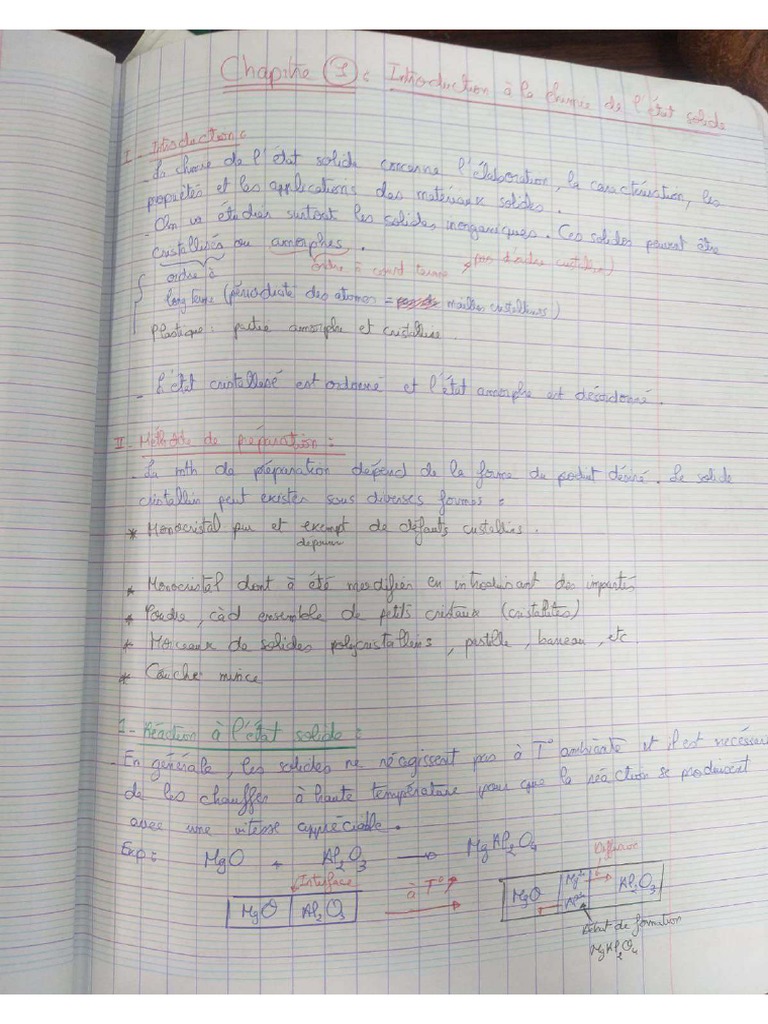 Chapitre 1 : Introduction à la chimie de l'état solide
I - Introduction :
- La chimie de l'état solide concerne l'élaboration, la caractérisation, les
propriétés et les applications des matériaux solides.
- On va étudier surtout les solides inorganiques. Ces solides peuvent être
cristallisés ou amorphes.
ordre à court terme (pas d'ordre cristallin)
ordre à
long terme (périodicité des atomes = mailles cristallines)
Plastique : partie amorphe et cristalline.
- L'état cristallisé est ordonné et l'état amorphe est désordonné.
II - Méthode de préparation :
- La mth de préparation dépend de la forme du produit désiré. Le solide
cristallin peut exister sous diverses formes :
* Monocristal pur et exempt de défauts cristallins.
* Monocristal dont à été modifier en introduisant des impuretés
* Poudre, càd ensemble de petits cristaux (cristallites)
* Morceaux de solides polycristallins, pastille, barreau, etc.
* Couche mince
1 - Réaction à l'état solide :
- En générale, les solides ne réagissent pas à T° ambiante et il est nécessaire
de les chauffer à haute température pour que la réaction se produisent
avec une vitesse appréciable.
Exp : MgO + Al2O3 → MgAl2O4
Diffusion
Interface
MgO | Al2O3
à T° ↗
MgO | Mg2+ Al3+ | Al2O3
Début de formation
MgAl2O4